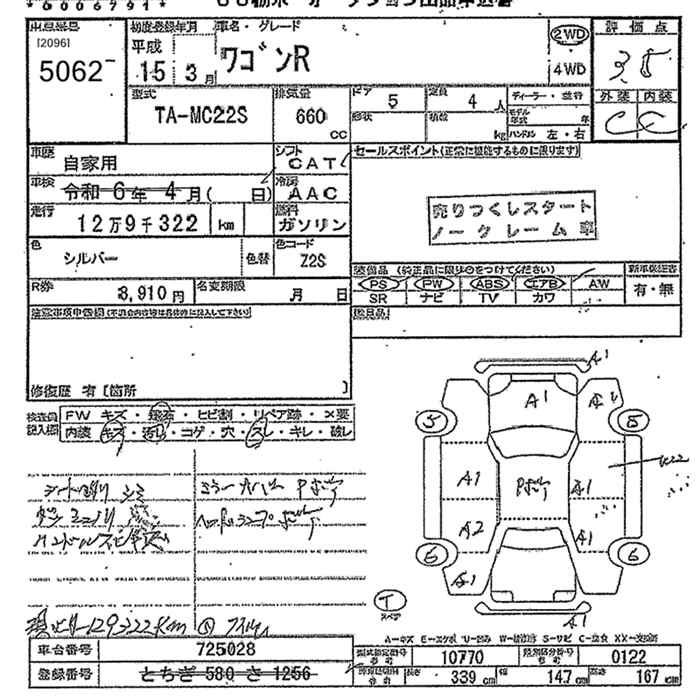 5062
初度登録年月 車名・グレード
平成 15年 3月 ワゴンR
2WD
4WD
評価点
3.5
外装 内装
C C
型式 TA-MC22S
排気量 660 cc
ドア 5
定員 4人
ディーラー・並行
形状
積載 kg
ハンドル 左・右
車歴 自家用
シフト CAT
車検 令和 6年 4月( 日)
冷房 AAC
走行 12万9千322 km
燃料 ガソリン
色 シルバー 色替
色コード Z2S
R券 8,910円
名変期限 月 日
セールスポイント(正常に機能するものに限ります)
売りつくしスタート
ノークレーム車
装備品 (純正品に限り○をつけてください)
新車保証書
PS PW ABS エアB AW
有・無
SR ナビ TV カワ
注意事項申告欄(不適合内容等は具体的に記入して下さい)
修復歴 有〔箇所 〕
検査員
記入欄
FW キズ・飛石・ヒビ割・リペア跡・×要
内装 キズ・汚れ・コゲ・穴・スレ・キレ・破レ
シミ
A1
A1
A1
5
5
A1
Pボケ
A1
U22
A2
A1
6
6
A1
A1
T
スペア
129322km
A-キズ E-エクボ U-凹み W-補修跡 S-サビ C-腐食 XX-交換済
車台番号 725028
型式指定番号 10770
類別区分番号 0122
登録番号 とちぎ 580 さ 1256
長さ 339 cm 幅 147 cm 高さ 167 cm